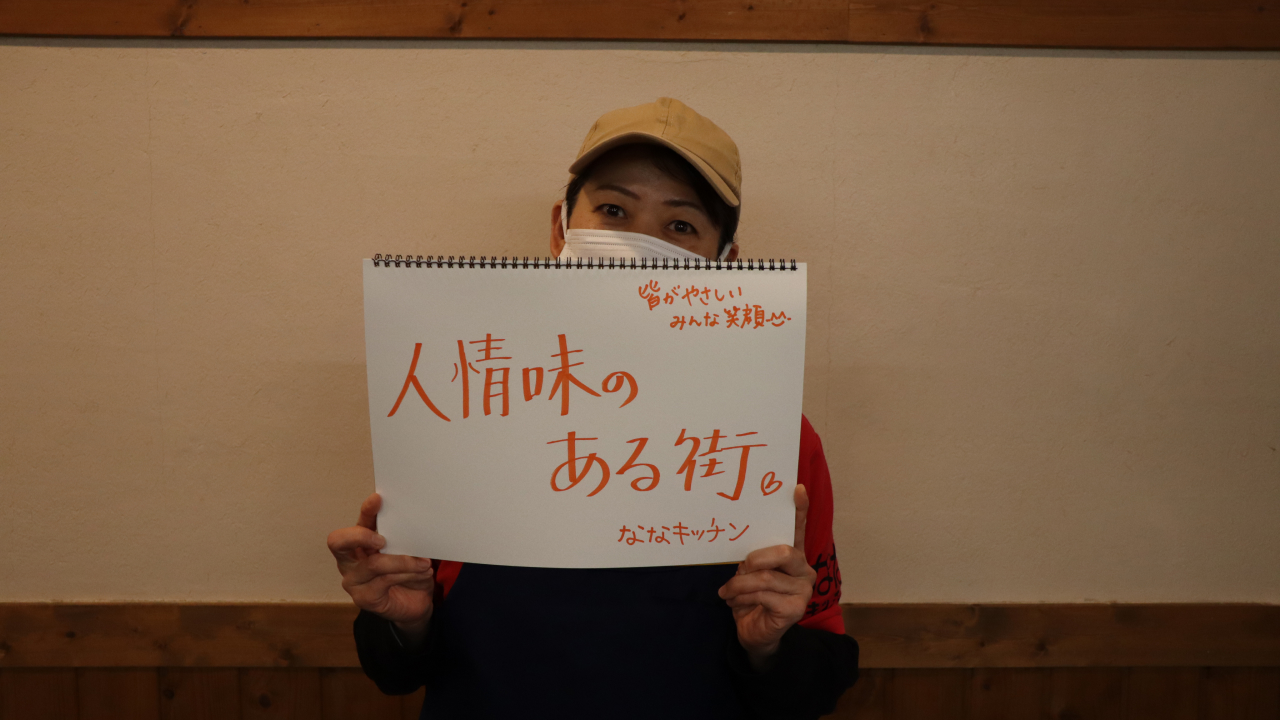 皆がやさしい
みんな笑顔
人情味の
ある街。
ななキッチン